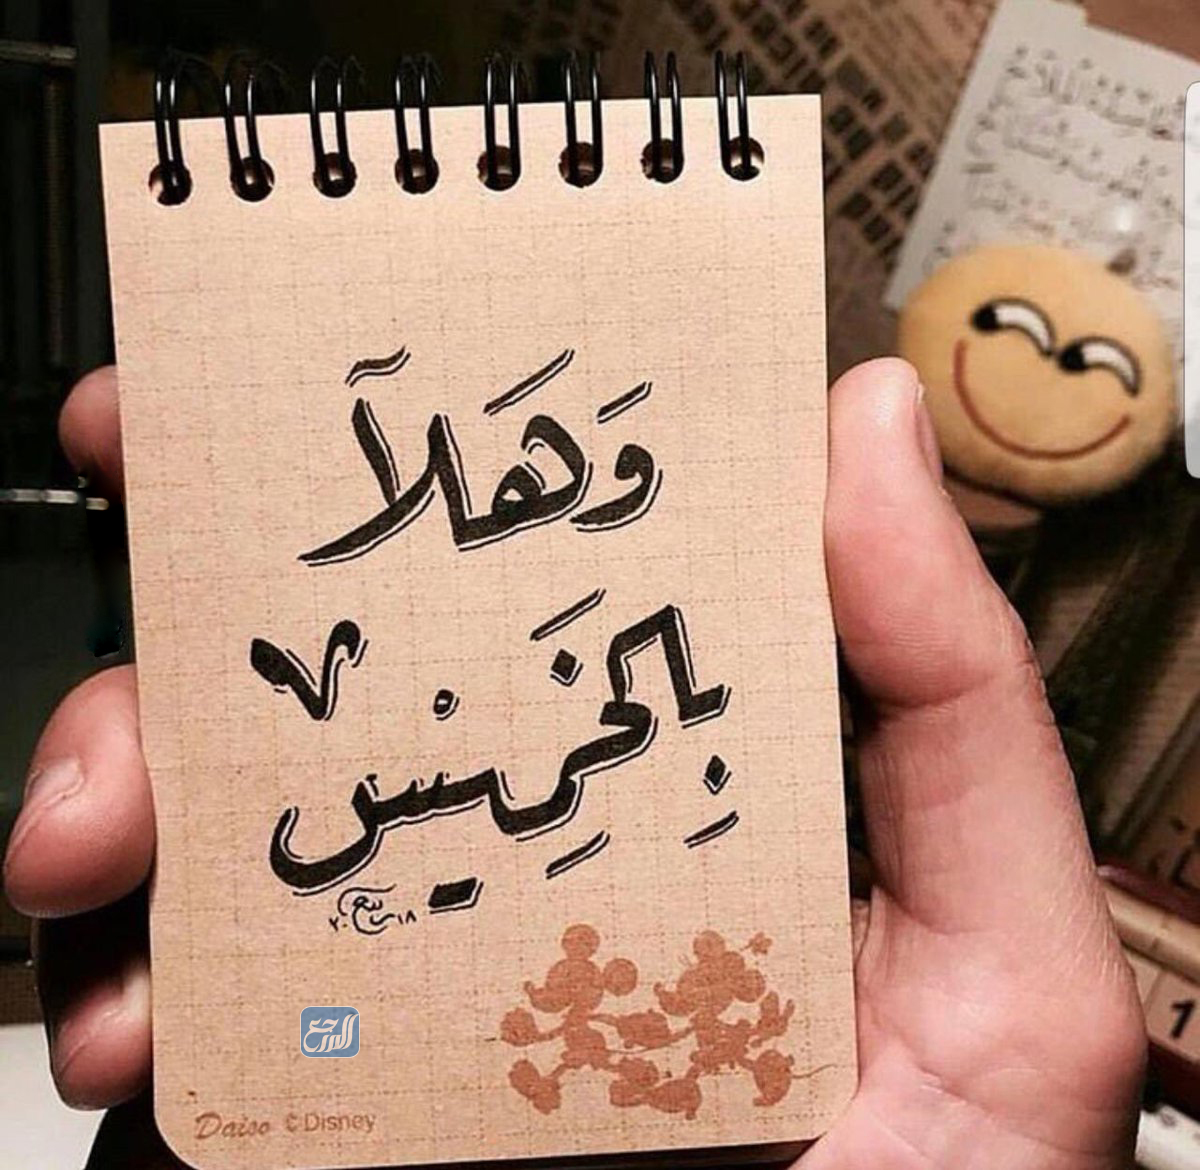 وَهَلآ
بِالخَمِيس
٢٠١٨
المرجع
Daiso © Disney
1